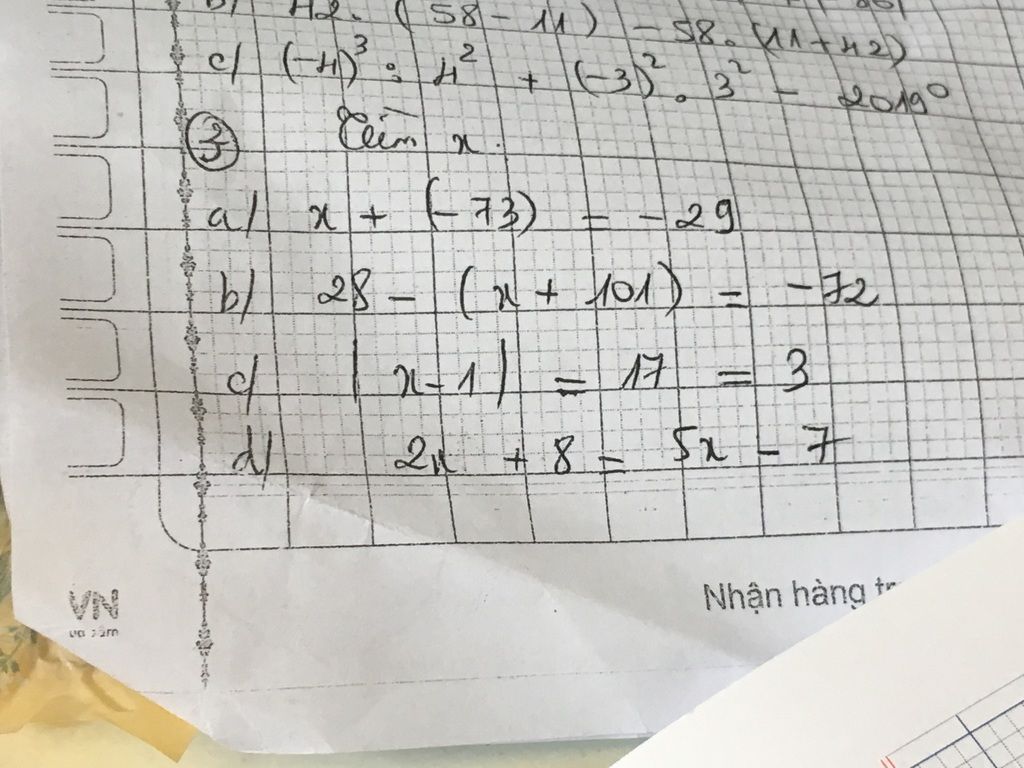 b) 42. (58 - 11) - 58. (11 + 42)
c) (-4)³ : 4² + (-3)² . 3² - 2019⁰
③ Tìm x.
a) x + (-73) = -29
b) 28 - (x + 101) = -72
c) |x - 1| = 17 = 3
d) 2x + 8 = 5x - 7
Nhận hàng
VN